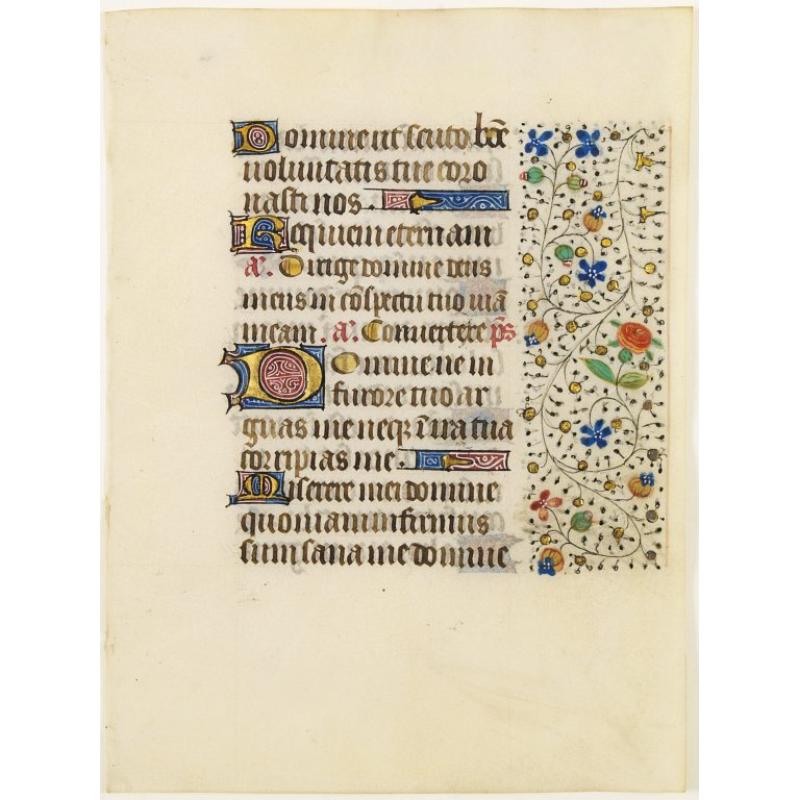 Domine ut scuto bōe
voluntatis tue coro
nasti nos.
Requiem eternam
a͛. Dirige domine deus
meus in cōspectu tuo viā
meam. a͛. Convertere. p̄s
Domine ne in
furore tuo ar
guas me neqz ī ira tua
corripias me.
Miserere mei domine
quoniam infirmus
sum sana me domine